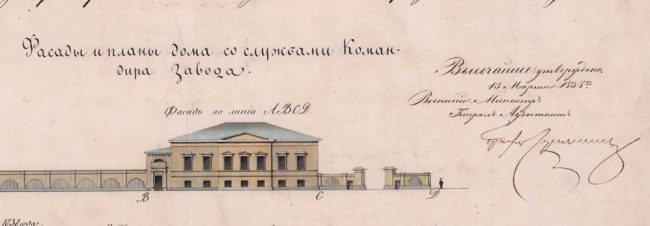 Фасады и планы дома со службами Коман-
дира Завода.
Высочайше утверждены.
13 Марта 1838го
Военный Министръ
Генералъ Адъютантъ
Графъ
Фасадъ по линiи ABCD.
B
C
D